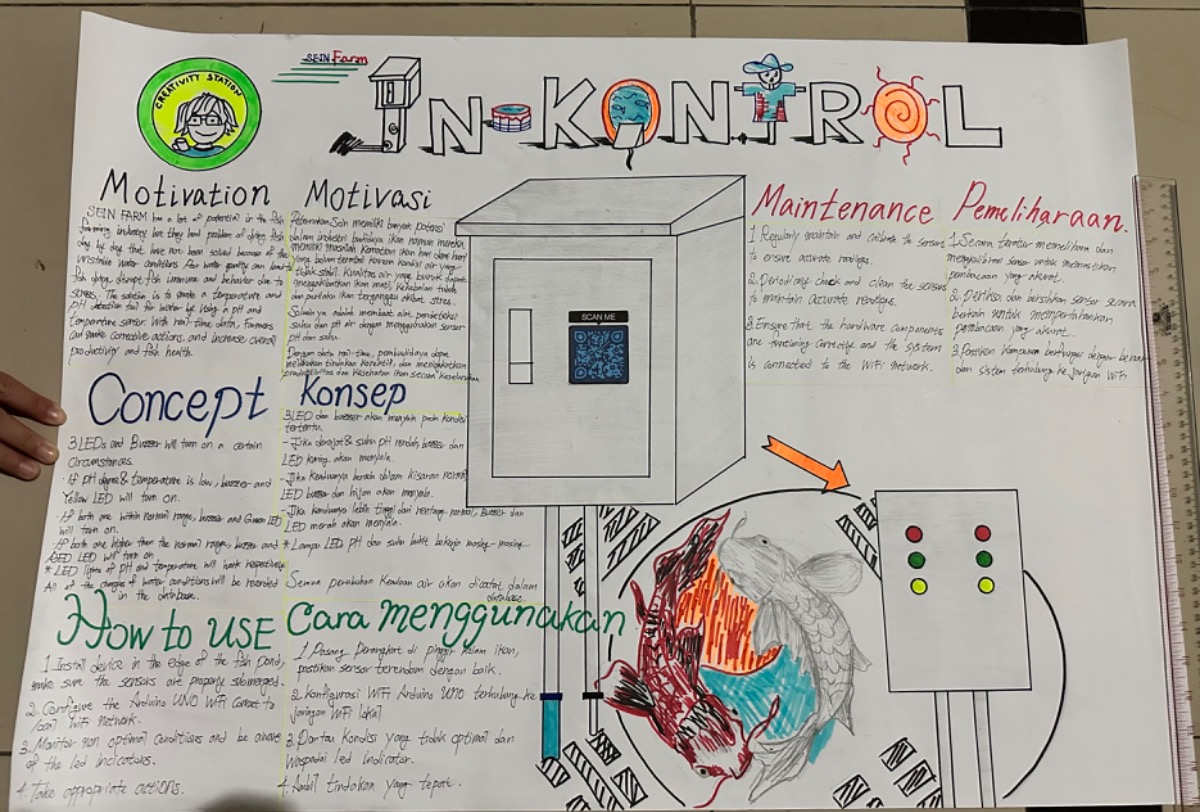 CREATIVITY STATION
SEIN Farm
IN-KONTROL
Motivation
SEIN FARM has a lot of potential in the fish
farming industry but they had problem of dying fish
day by day that have not been solved because of the
unstable water conditions. Poor water quality can lead to
fish dying, disrupt fish immune and behavior due to
stress. The solution is to create a temperature and
pH detection tool for water by using a pH and
temperature sensor. With real-time data, farmers
can make corrective actions, and increase overall
productivity and fish health.
Motivasi
Peternakan Sein memiliki banyak potensi
dalam industri budidaya ikan namun mereka
memiliki masalah kematian ikan hari demi hari
yang belum teratasi karena kondisi air yang
tidak stabil. Kualitas air yang buruk dapat
mengakibatkan ikan mati, kekebalan tubuh
dan perilaku ikan terganggu akibat stres.
Solusinya adalah membuat alat pendeteksi
suhu dan pH air dengan menggunakan sensor
pH dan suhu.
Dengan data real-time, pembudidaya dapat
melakukan tindakan korektif, dan meningkatkan
produktivitas dan kesehatan ikan secara keseluruhan
Concept
3 LEDs and Buzzer will turn on a certain
circumstances.
- If pH degree & temperature is low, buzzer and
Yellow LED will turn on.
- If both are within normal range, buzzer and Green LED
will turn on.
- If both are higher than the normal range, buzzer and
RED LED will turn on
* LED lights of pH and temperature will work respectively
All of the changes of water conditions will be recorded
in the database.
Konsep
3 LED dan buzzer akan menyala pada kondisi
tertentu.
- Jika derajat & suhu pH rendah, buzzer dan
LED kuning akan menyala.
- Jika keduanya berada dalam kisaran normal
LED buzzer dan hijau akan menyala.
- Jika keduanya lebih tinggi dari rentang normal, Buzzer dan
LED merah akan menyala.
* Lampu LED pH dan suhu bekerja masing-masing
Semua perubahan keadaan air akan dicatat dalam
database.
How to USE
1. Install device in the edge of the fish pond,
make sure the sensors are properly submerged.
2. Configure the Arduino UNO WiFi connect to
local WiFi network.
3. Monitor non optimal conditions and be aware
of the led indicators.
4. Take appropriate actions.
Cara menggunakan
1. Pasang Perangkat di pinggir kolam ikan,
pastikan sensor terendam dengan baik.
2. Konfigurasi WiFi Arduino UNO terhubung ke
jaringan WiFi lokal
3. Pantau kondisi yang tidak optimal dan
waspadai led indicator.
4. Ambil tindakan yang tepat.
SCAN ME
Maintenance
1. Regularly maintain and calibrate the sensors
to ensure accurate readings.
2. Periodically check and clean the sensors
to maintain accurate readings.
3. Ensure that the hardware components
are functioning correctly and the system
is connected to the WiFi network.
Pemeliharaan.
1. Secara teratur memelihara dan
mengkalibrasi sensor untuk memastikan
pembacaan yang akurat.
2. Periksa dan bersihkan sensor secara
berkala untuk mempertahankan
pembacaan yang akurat.
3. Pastikan komponen berfungsi dengan benar
dan sistem terhubung ke jaringan WiFi